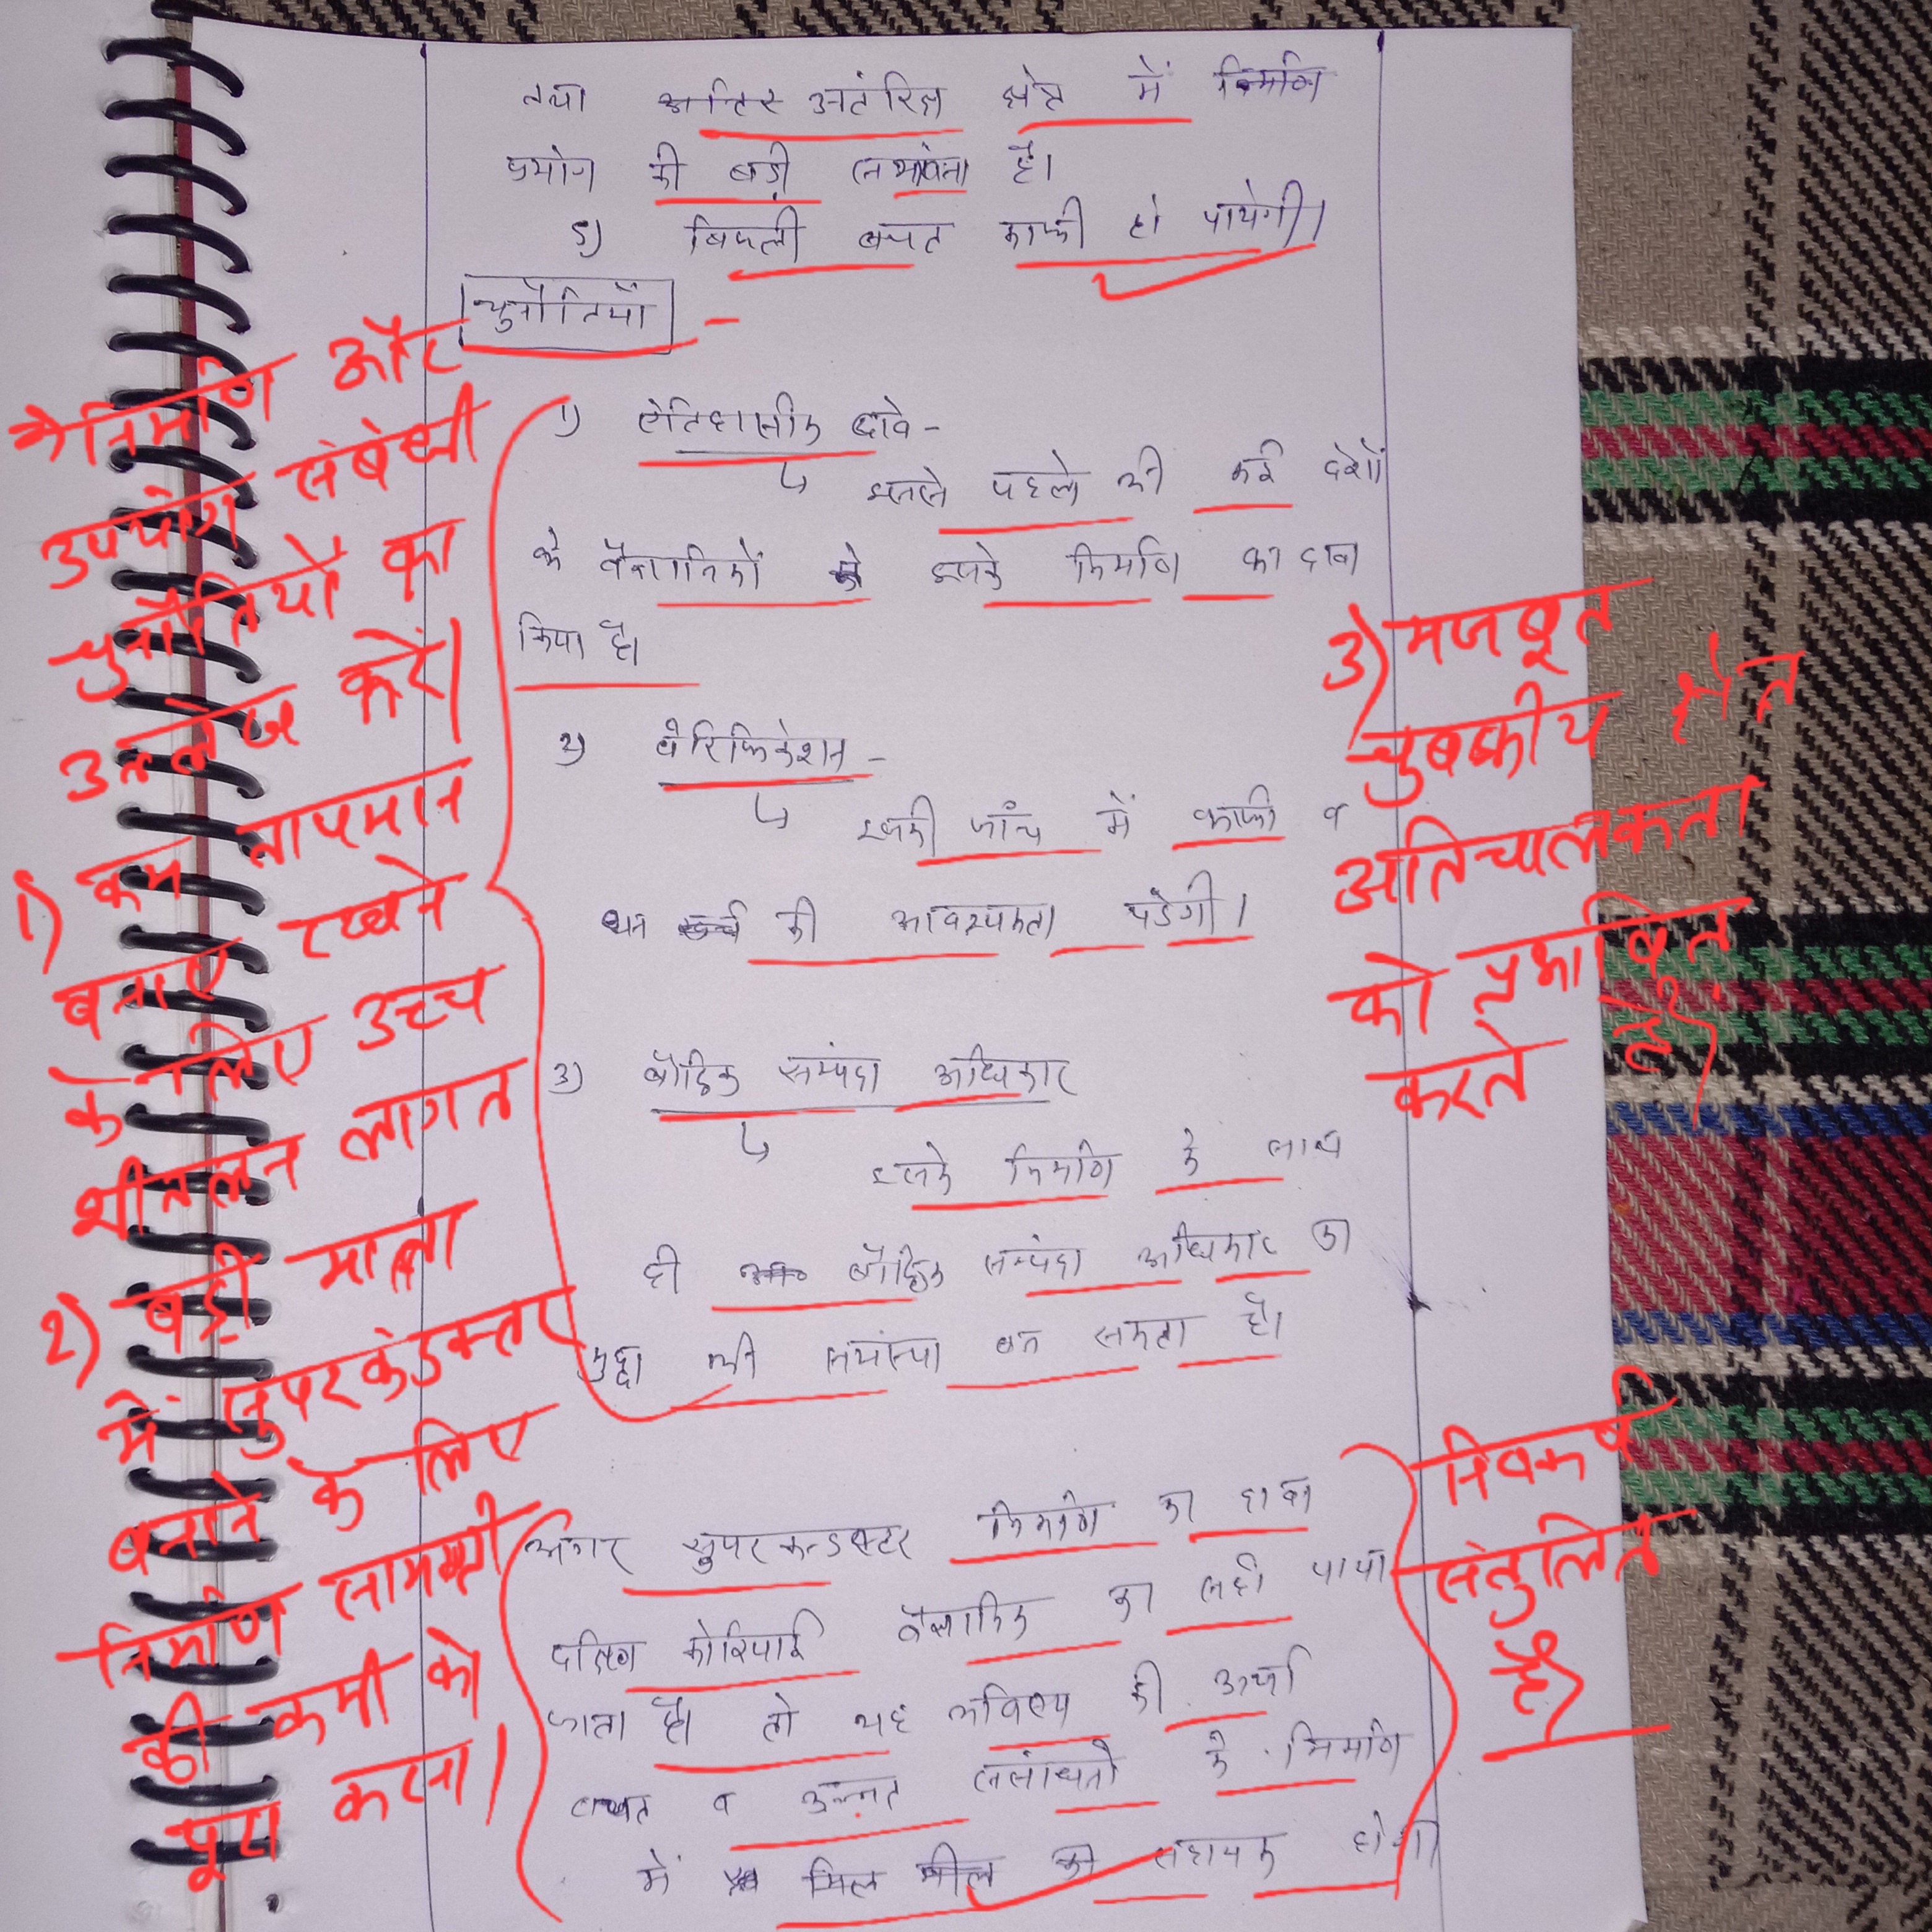 तथा अंतरिक्ष क्षेत्र में निर्माण
प्रयोग की बड़ी सम्भावना है।
5) बिजली बचत काफी हो पायेगी।
चुनौतियाँ
1) ऐतिहासीक दावे -
↳ इससे पहले भी कई देशों
के वैज्ञानिकों ने इसके निर्माण का दावा
किया है।
2) वेरिफिकेशन -
↳ इसकी जांच में काफी व
धन खर्च की आवश्यकता पडेगी।
3) बौद्धिक सम्पदा अधिकार
↳ इसके निर्माण के साथ
ही बौद्धिक सम्पदा अधिकार का
मुद्दा भी समस्या बन सकता है।
अगर सुपरकन्डक्टर निर्माण का दावा
दक्षिण कोरियाई वैज्ञानिक का सही पाया
जाता है। तो यह भविष्य की ऊर्जा
बचत व उन्नत संसाधनो के निर्माण
में मिल मील का सहायक होगा
→ निर्माण और
उपयोग संबंधी
चुनौतियों का
उल्लेख करें।
1) कम तापमान
बनाए रखने
के लिए उच्च
शीतलन लागत
2) बड़ी मात्रा
में सुपरकंडक्टर
बनाने के लिए
निर्माण सामग्री
की कमी को
पूरा करना।
3) मजबूत
चुबकीय क्षेत्र
अतिचालकता
को प्रभावित
करते है।
निष्कर्ष
संतुलित
है।